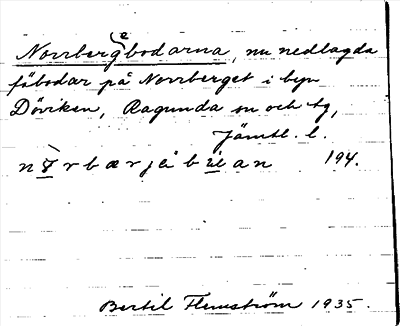 Norrbergebodarna, nu nedlagda
fäbodar på Norrberget i byn
Döviken, Ragunda sn och tg,
Jämtl. l.
194.
Bertil Flemström 1935.